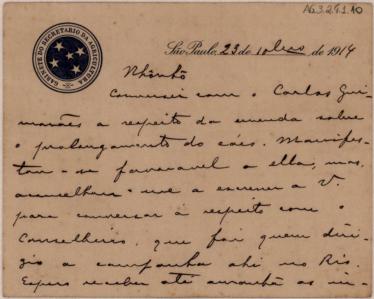 AG3.2.9.1.10
GABINETE DO SECRETARIO DA AGRICULTURA
São Paulo, 23 de de 1914
Nhônhô
Conversei com o Carlos Gui-
marães a respeito da emenda sobre
o prolongamento do cáes. Manifes-
tou-se favoravel a ella, mas,
aconselhou-me a escrever a V.
para conversar á respeito com o
Conselheiro, que foi quem diri-
gio a campanha ahi no Rio.
Espero receber até amanhã as in-